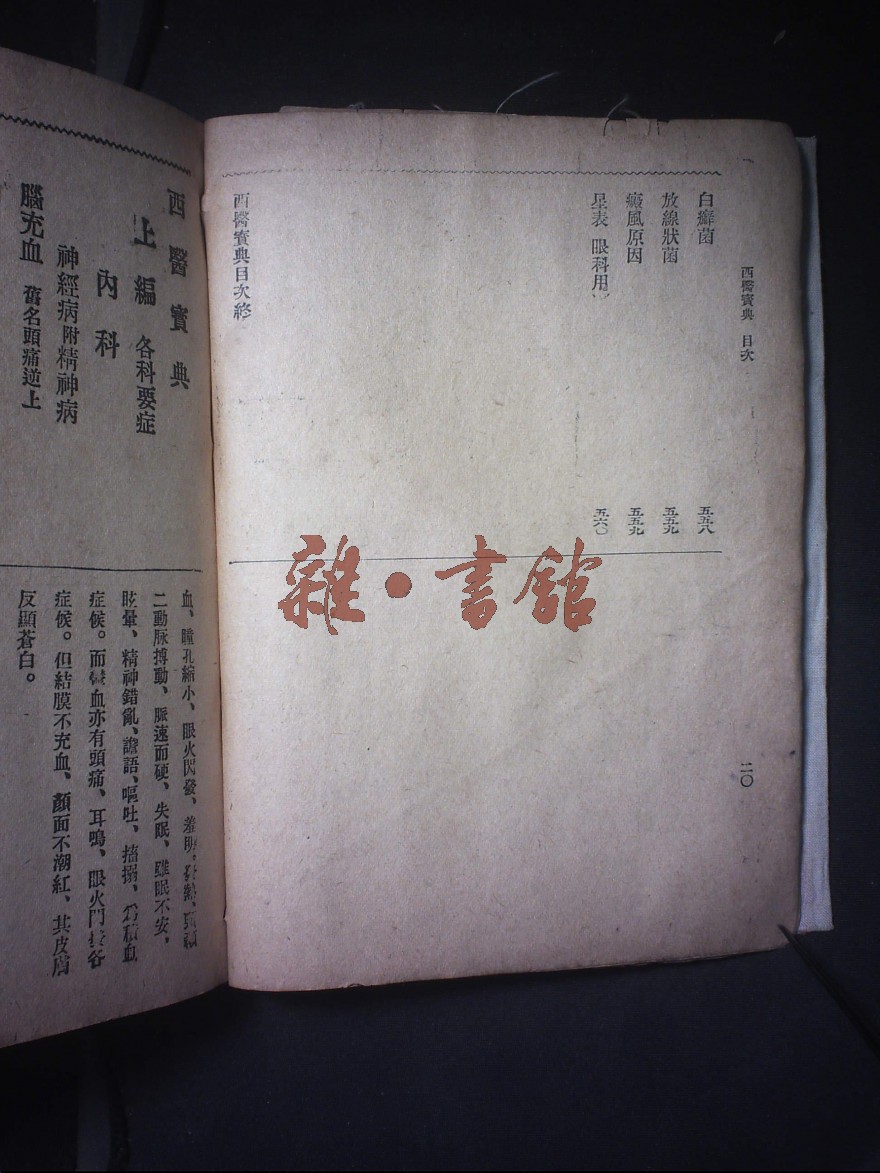 西醫寶典 目次
二〇
白癬菌 五五八
放線狀菌 五五九
癜風原因 五五九
星表 眼科用 五六〇
西醫寶典目次終
雜·書館
西醫寶典
上編 各科要症
內科
神經病附精神病
腦充血 舊名頭痛逆上
血、瞳孔縮小、眼火閃發、羞明、
二動脉搏動、脈速而硬、失眠、雖眠不安、
眩暈、精神錯亂、譫語、嘔吐、搐搦、
症候。而鬱血亦有頭痛、耳鳴、眼火
症候。但結膜不充血、顏面不潮紅、其皮膚
反顯蒼白。